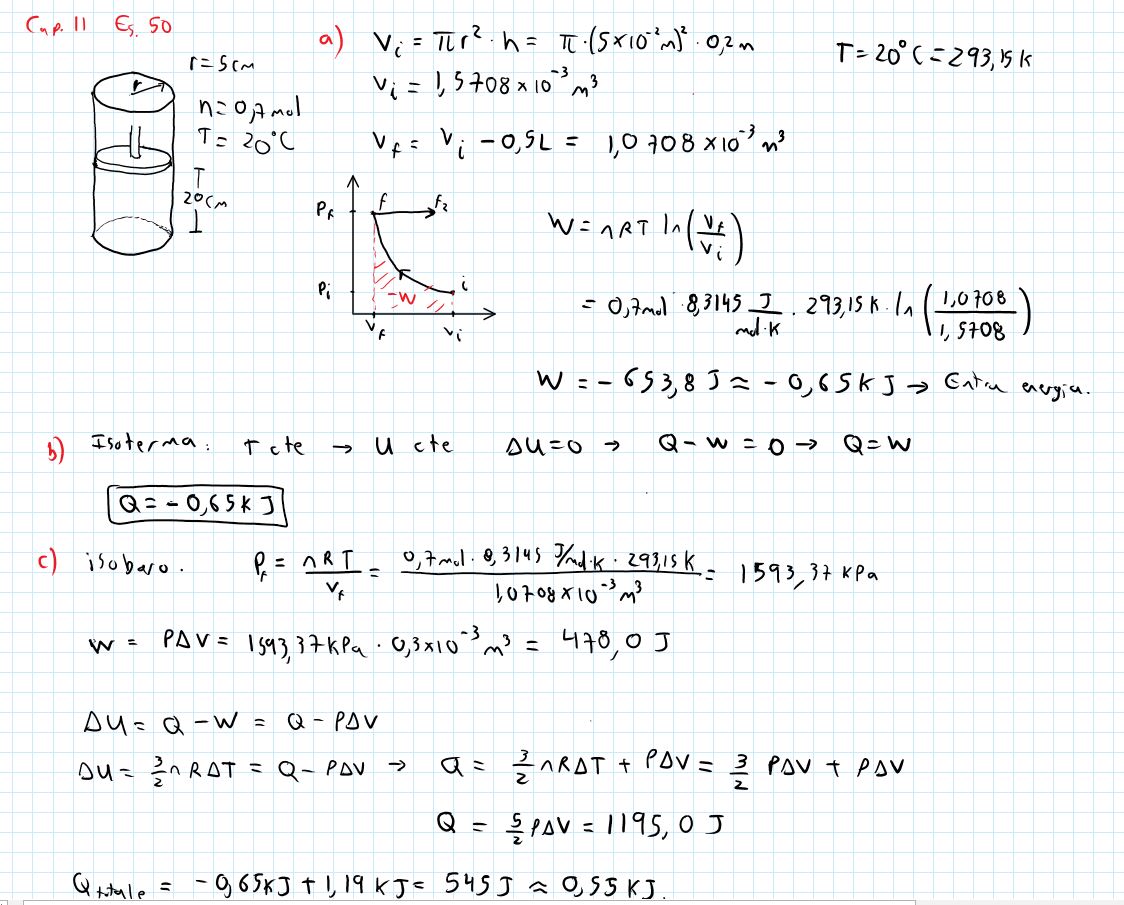 Cap. 11 Es. 50
r = 5 cm
r
n = 0,7 mol
T = 20°C
20 cm
a) Vi = πr² · h = π·(5×10⁻²m)² · 0,2m
T = 20°C = 293,15 K
Vi = 1,5708 × 10⁻³ m³
Vf = Vi − 0,5L = 1,0708 × 10⁻³ m³
Pf
f
F₂
Pi
i
−W
Vf
Vi
W = nRT ln(Vf/Vi)
= 0,7mol · 8,3145 J/mol·K · 293,15 K · ln(1,0708/1,5708)
W = − 653,8 J ≈ − 0,65 kJ → Entra energia.
b) Isoterma: T cte → U cte ΔU = 0 → Q − W = 0 → Q = W
Q = − 0,65 kJ
c) isobaro. Pf = nRT/Vf = 0,7mol · 8,3145 J/mol·K · 293,15 K / 1,0708×10⁻³m³ = 1593,37 kPa
W = PΔV = 1593,37 kPa · 0,3×10⁻³ m³ = 478,0 J
ΔU = Q − W = Q − PΔV
ΔU = 3/2 nRΔT = Q − PΔV → Q = 3/2 nRΔT + PΔV = 3/2 PΔV + PΔV
Q = 5/2 PΔV = 1195,0 J
Q totale = − 0,65kJ + 1,19 kJ = 545 J ≈ 0,55 kJ.